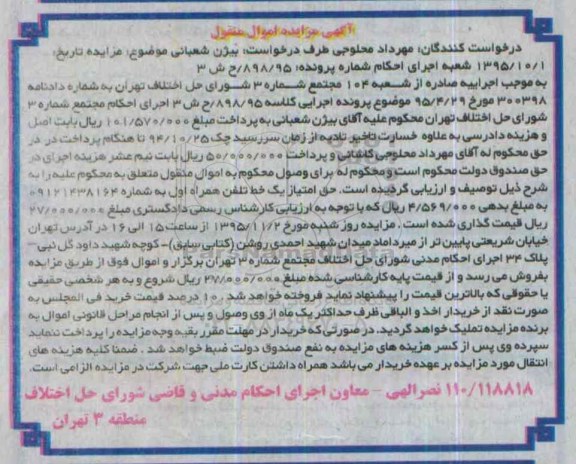 آگهی مزایده اموال منقول
درخواست کنندگان: مهرداد محلوجی طرف درخواست: بیژن شعبانی موضوع: مزایده تاریخ:
۱۳۹۵/۱۰/۱ شعبه اجرای احکام شماره پرونده: ۸۹۸/۹۵/ح ش ۳
به موجب اجراییه صادره از شعبه ۱۰۴ مجتمع شماره ۳ شورای حل اختلاف تهران به شماره دادنامه
۳۰۰۳۹۸ مورخ ۹۵/۴/۲۹ موضوع پرونده اجرایی کلاسه ۸۹۸/۹۵/ح ش ۳ اجرای احکام مجتمع شماره ۳
شورای حل اختلاف تهران محکوم علیه آقای بیژن شعبانی به پرداخت مبلغ ۱۰۱/۵۷۰/۰۰۰ ریال بابت اصل
و هزینه دادرسی به علاوه خسارت تاخیر تادیه از زمان سررسید چک ۹۴/۱۰/۲۵ تا هنگام پرداخت در در
حق محکوم له آقای مهرداد محلوجی کاشانی و پرداخت ۵۰/۰۰۰/۰۰۰ ریال بابت نیم عشر هزینه اجرای در
حق صندوق دولت محکوم است و محکوم له برای وصول محکوم به اموال منقول متعلق به محکوم علیه را به
شرح ذیل توصیف و ارزیابی گردیده است. حق امتیاز یک خط تلفن همراه اول به شماره ۰۹۱۲۱۴۳۸۱۶۴
به مبلغ بدهی ۴/۵۶۹/۰۰۰ ریال که با توجه به ارزیابی کارشناس رسمی دادگستری مبلغ ۲۷/۰۰۰/۰۰۰
ریال قیمت گذاری شده است. مزایده روز شنبه مورخ ۱۳۹۵/۱۱/۲ از ساعت ۱۵ الی ۱۶ در آدرس تهران
خیابان شریعتی پایین تر از میرداماد میدان شهید احمدی روشن (کتابی سابق) - کوچه شهید داود گل نبی -
پلاک ۳۴ اجرای احکام مدنی شورای حل اختلاف مجتمع شماره ۳ تهران برگزار و اموال فوق از طریق مزایده
بفروش می رسد و از قیمت پایه کارشناسی شده مبلغ ۲۷/۰۰۰/۰۰۰ ریال شروع و به هر شخصی حقیقی
یا حقوقی که بالاترین قیمت را پیشنهاد نماید فروخته خواهد شد. ۱۰ درصد قیمت خرید فی المجلس به
صورت نقد از خریدار اخذ و الباقی ظرف حداکثر یک ماه از وی وصول و پس از انجام مراحل قانونی اموال به
برنده مزایده تملیک خواهد گردید. در صورتی که خریدار در مهلت مقرر بقیه وجه مزایده را پرداخت ننماید
سپرده وی پس از کسر هزینه های مزایده به نفع صندوق دولت ضبط خواهد شد. ضمنا کلیه هزینه های
انتقال مورد مزایده بر عهده خریدار می باشد همراه داشتن کارت ملی جهت شرکت در مزایده الزامی است.
۱۱۰/۱۱۸۸۱۸ نصرالهی - معاون اجرای احکام مدنی و قاضی شورای حل اختلاف
منطقه ۳ تهران